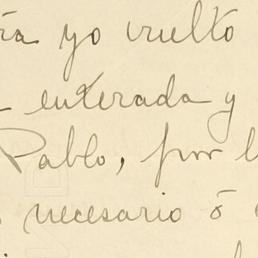 ra yo vuelto
enterada y
Pablo, por l
necesario ó